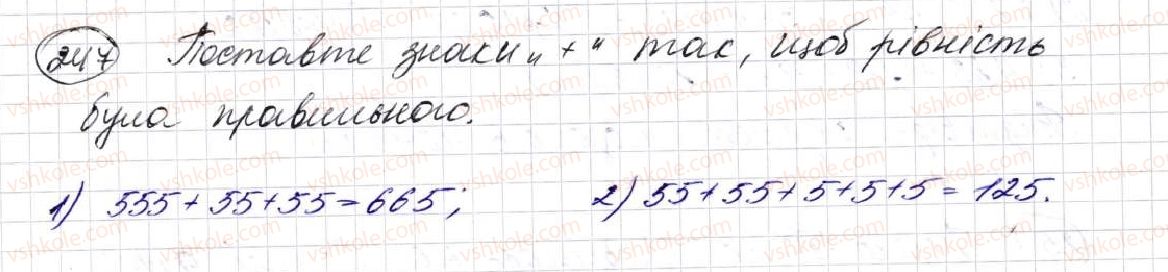 247 Поставте знаки „+" так, щоб рівність
була правильною.
1) 555+55+55=665; 2) 55+55+5+5+5=125.